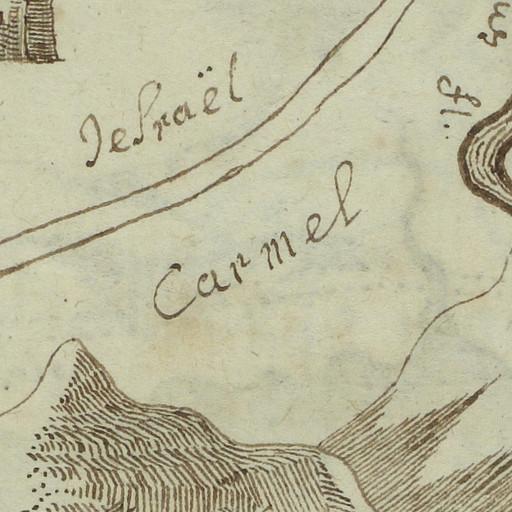 Jesraël
Carmel
us
fl.